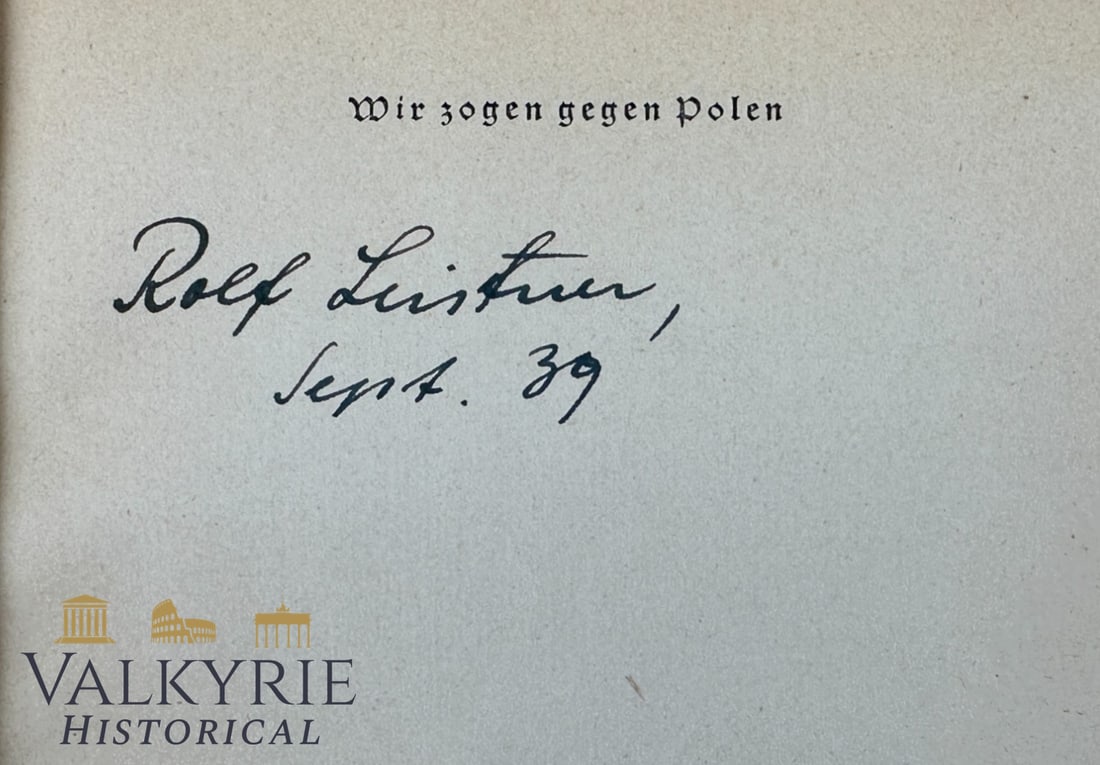 Wir zogen gegen Polen
Rolf Leistner,
Sept. 39
VALKYRIE
HISTORICAL